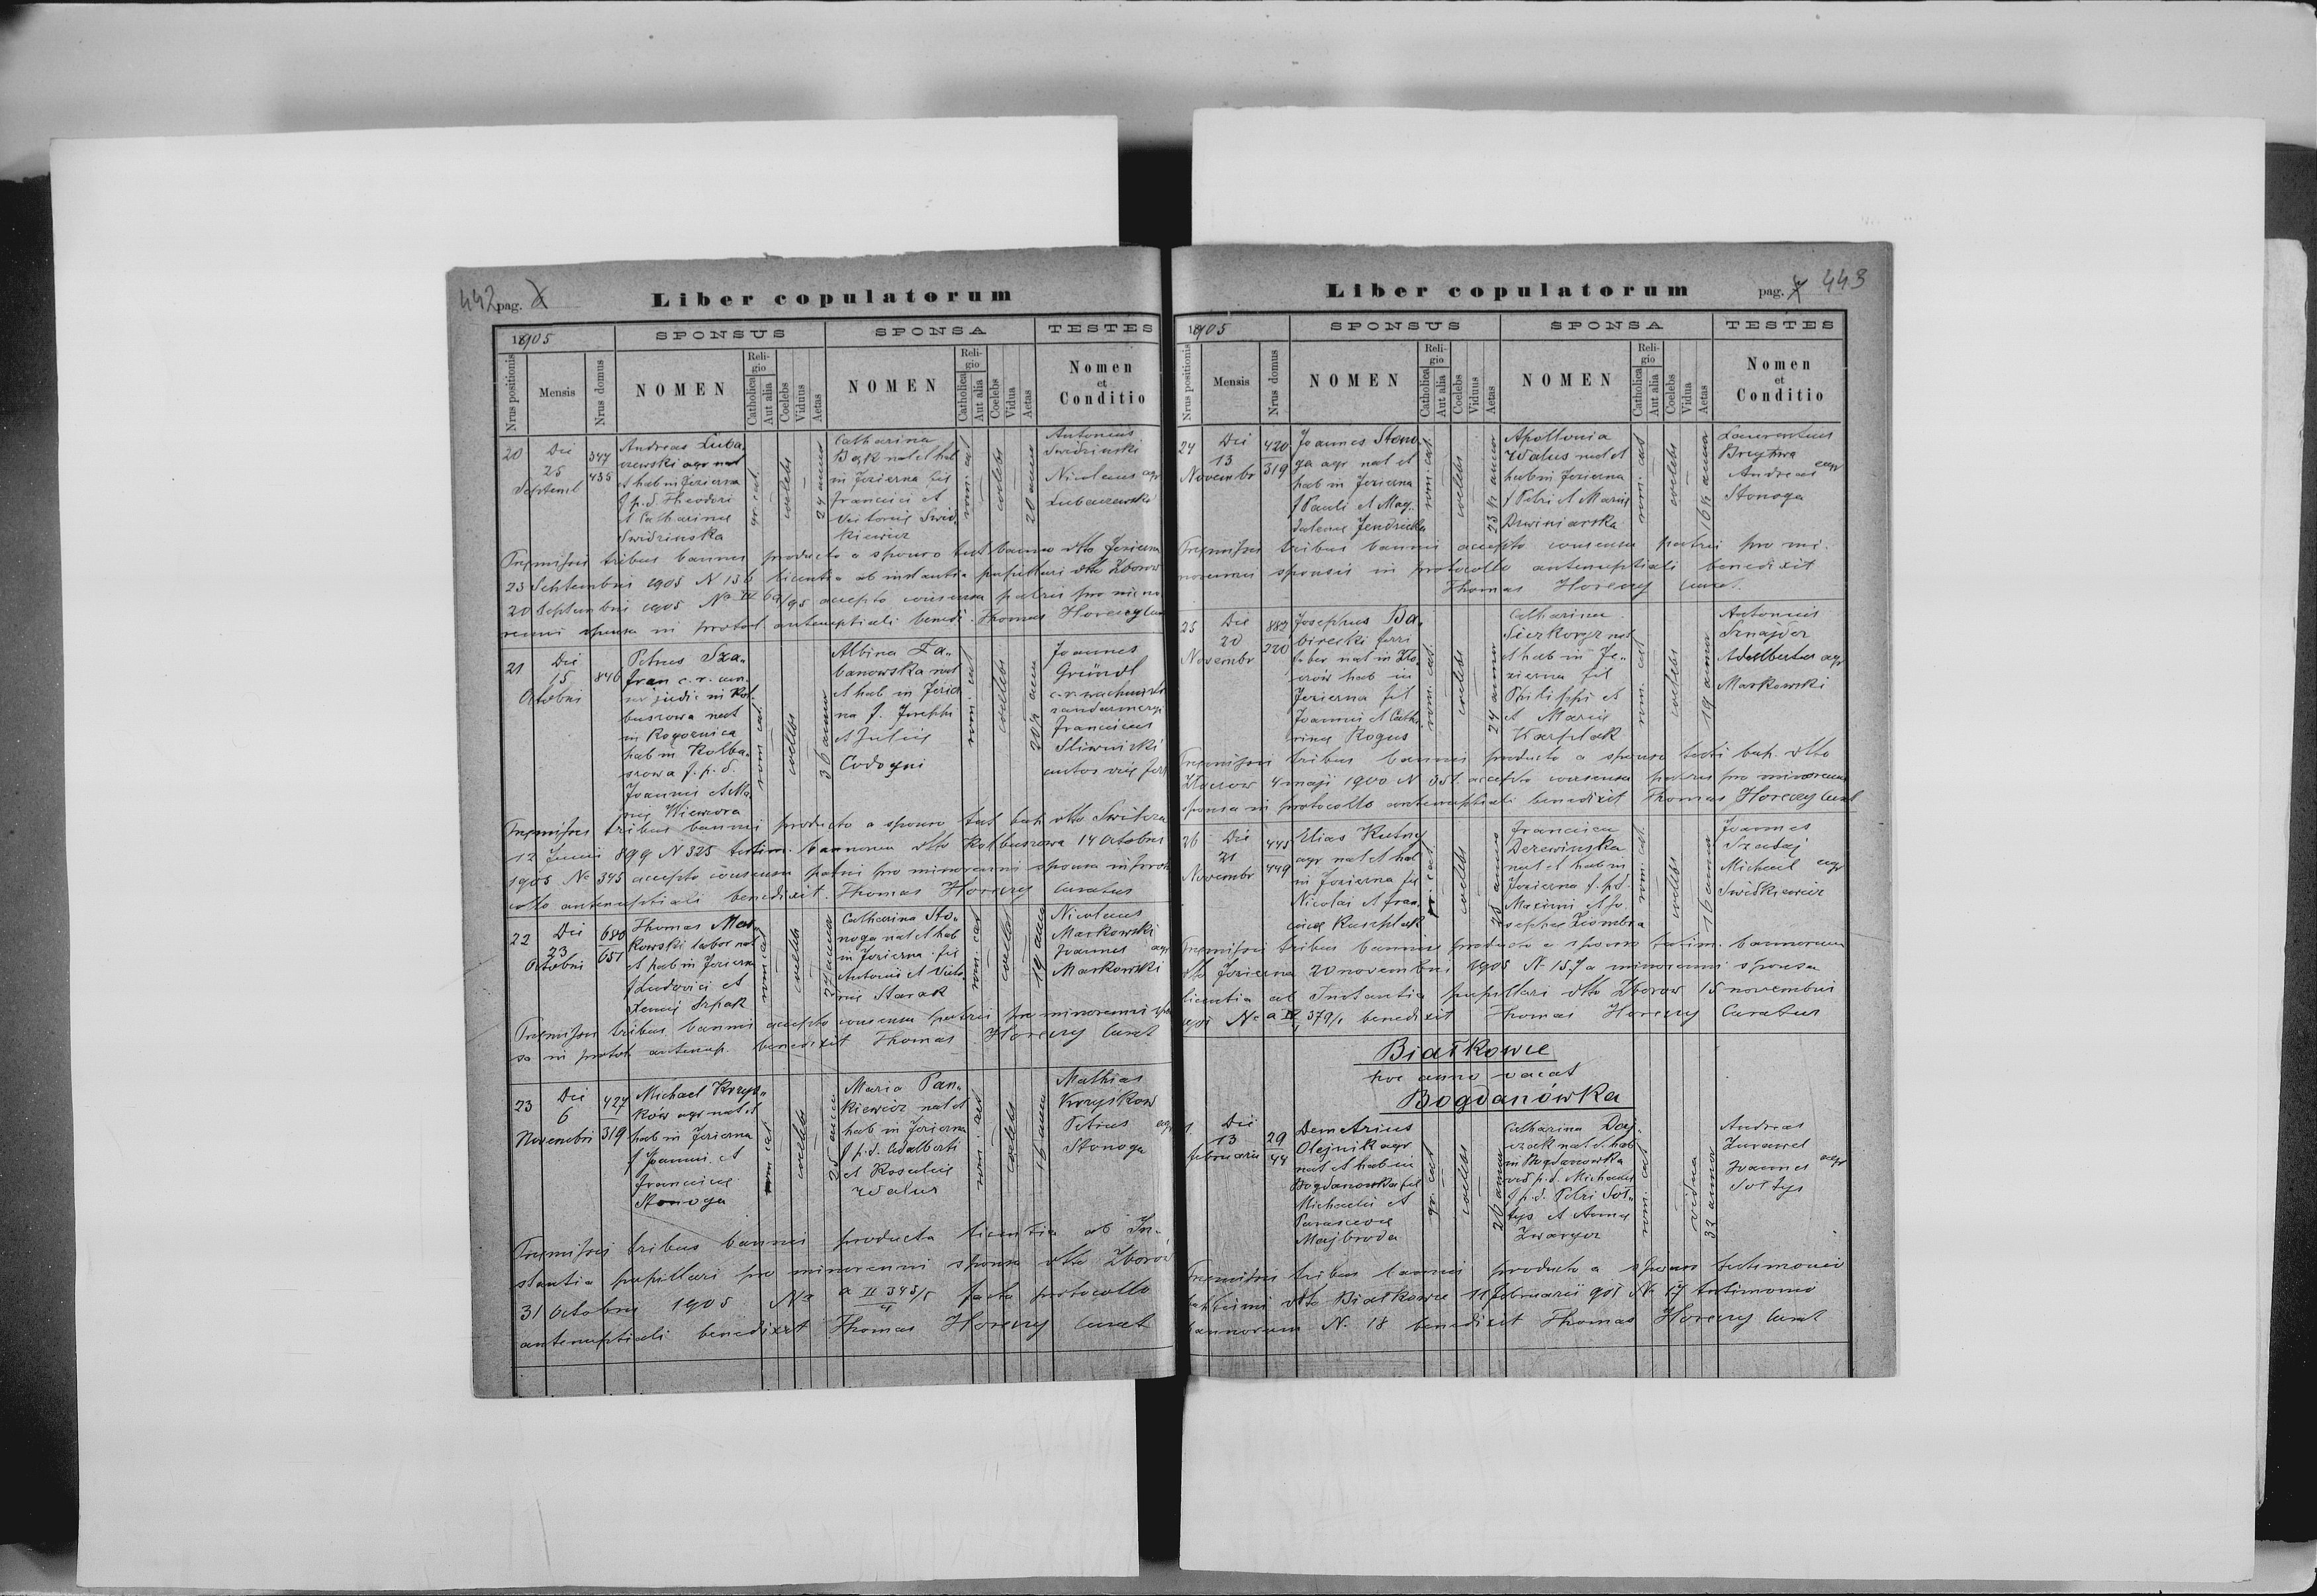 442 pag.
Liber copulatorum
1905
SPONSUS
SPONSA
TESTES
Nrus positionis
Mensis
Nrus domus
NOMEN
Religio
Catholica
Aut alia
Coelebs
Viduus
Aetas
NOMEN
Religio
Catholica
Aut alia
Coelebs
Vidua
Aetas
Nomen
et
Conditio
20
Die
25
Septemb
347
435
Andreas Luba
czewski agr nat
et hab in Jezierna
f p. d. Theodori
et Catharinae
Swidzinska
gr. cat.
coelebs
24 anno
Catharina
Bąk nat et hab
in Jezierna fil
Francisci et
Victoriae Swid
kiewicz
rom. cat
coelebs
20 anno
Antonius
Swidzinski
Nicolaus agr
Lubaczewski
Praemissis tribus bannis producto a sponso test bannor dtto Jezierna
23 Septembris 1905 N 136 licentia ab instantia pupillari dtto Zborow
20 Septembris 1905 accepto consensu patris pro mino
renni sponsa in protocol. antenuptiali bened. Thomas Horeczy Curat
21
Die
15
Octobris
846
Petrus Sza„
fran c. r.
judic in Kol„
buszowa nat
in Rogoznica
hab in Kolbu„
szowa f. p. d.
Joannis et Ma„
riae Wiewiora
rom cat.
coelebs
36 anno
Albina Ła„
banowska nat
et hab in Jezier
na f. Josephi
et Juliae
Codogni
rom. cat
coelebs
20½ anno
Joannes
Gründl
c. r. wachmistr
zandarmeryi
Franciscus
Sliwinski
Praemissis tribus bannis producto a sponso test bapt dtto Swilcza
12 Junii 899 N 325 testim. bannorum dtto Kolbuszowa 14 Octobris
1905 No 345 accepto consensu patris pro minorenni sponsa in proto
collo antenuptiali benedixit Thomas Horeczy Curatus
22
Die
23
Octobris
680
651
Thomas Mar
kowski labor nat
et hab in Jezierna
f Ludovici et
Xeniae Szpak
rom cat
coelebs
27 anno
Catharina Sto„
noga nat et hab
in Jezierna fil
Antonii et Victo
riae Starak
rom. cat
coelebs
19 anno
Nicolaus
Markowski
Joannes agr
Markowski
Praemissis tribus bannis accepto consensu patris pro minorenni spon
sa in protok antenup. benedixit Thomas Horeczy Curat
23
Die
6
Novembris
427
319
Michael Krzys„
ków agr nat et
hab in Jezierna
f Joannis et
Franciscae
Stonoga
rom cat
coelebs
25 anno
Maria Pan„
kiewicz nat et
hab in Jezierna
f p. d. Adalberti
et Rosaliae
Walus
rom. cat
coelebs
16 anno
Mathias
Krzyskow
Petrus agr
Stonoga
Praemissis tribus bannis producta licentia ab In„
stantia pupillari pro minorenni sponsa dtto Zborów
31 Octobris 1905 No a II 345/5 facto protocollo
antenuptiali benedixit Thomas Horeczy Curat
Liber copulatorum
pag. 443
1905
SPONSUS
SPONSA
TESTES
Nrus positionis
Mensis
Nrus domus
NOMEN
Religio
Catholica
Aut alia
Coelebs
Viduus
Aetas
NOMEN
Religio
Catholica
Aut alia
Coelebs
Vidua
Aetas
Nomen
et
Conditio
24
Die
13
Novembr
420
319
Joannes Stono„
ga agr nat et
hab in Jezierna
f Pauli et Mag„
dalenae Jendruchka
rom. cat.
coelebs
23½ anno
Apollonia
Walus nat et
hab in Jezierna
f Petri et Mariae
Drwiniarska
rom. cat
coelebs
16½ anno
Laurentius
Breyhwa
Andreas agr
Stonoga
Praemissis tribus bannis accepto consensu patris pro mi„
norenni sponsis in protocollo antenuptiali benedixit
Thomas Horeczy Curat.
25
Die
20
Novembr
882
220
Josephus Ba„
birecki ferri
faber nat in Zło„
czów hab in
Jezierna fil
Joannis et Catha
rinae Rogus
rom. cat
coelebs
24 anno
Catharina
Sierkowyz nat
et hab in Je„
zierna fil
Philippi et
et Mariae
Karplak
rom. cat
coelebs
19 anno
Antonius
Sznajder
Adalbertus agr
Markowski
Praemissis tribus bannis producto a sponso testi bapt. dtto
Złoczow 4 maji 1900 N 351 accepto consensu patris pro minorenni
sponsa in protocollo antenuptiali benedixit Thomas Horeczy Curat
26
Die
21
Novembr
445
449
Elias Kutny
agr nat et hab
in Jezierna fil
Nicolai et Fran„
ciscae Karplak
gr. cat
coelebs
25 anno
Francisca
Derewinska
nat et hab in
Jezierna f. p. d.
Maximi et Jo„
sephae Ziombra
rom. cat.
coelebs
16 anno
Joannes
Szadaj
Michael agr
Swidkiewicz
Praemissis tribus bannis producto a sponso testim. bannorum
dtto Jezierna 20 novembris 1905 N 157 a minorenni sponsa
licentia ab Instantia pupillari dtto Zborow 15 novembris
905 No a II 379/1 benedixit Thomas Horeczy Curatus
Białkowce
hoc anno vacat
Bogdanówka
1
Die
13
februarii
29
44
Demetrius
Olejnik agr
nat et hab in
Bogdanowka fil
Michaelis et
Parascevae
Majbroda
gr. cat
coelebs
26 anno
Catharina Daj„
czak nat et hab
in Bogdanowka
vid p. d. Michaelis
f p. d. Petri Soł„
tys et Annae
Zwarycz
rom. cat
vidua
32 anno
Andreas
Zurawel
Joannes agr
Sołtys
Praemissis tribus bannis producto a sponso testimonio
baptismi dtto Białkowce 11 februarii 905 N 17 testimonio
bannorum N. 18 benedixit Thomas Horeczy Curat